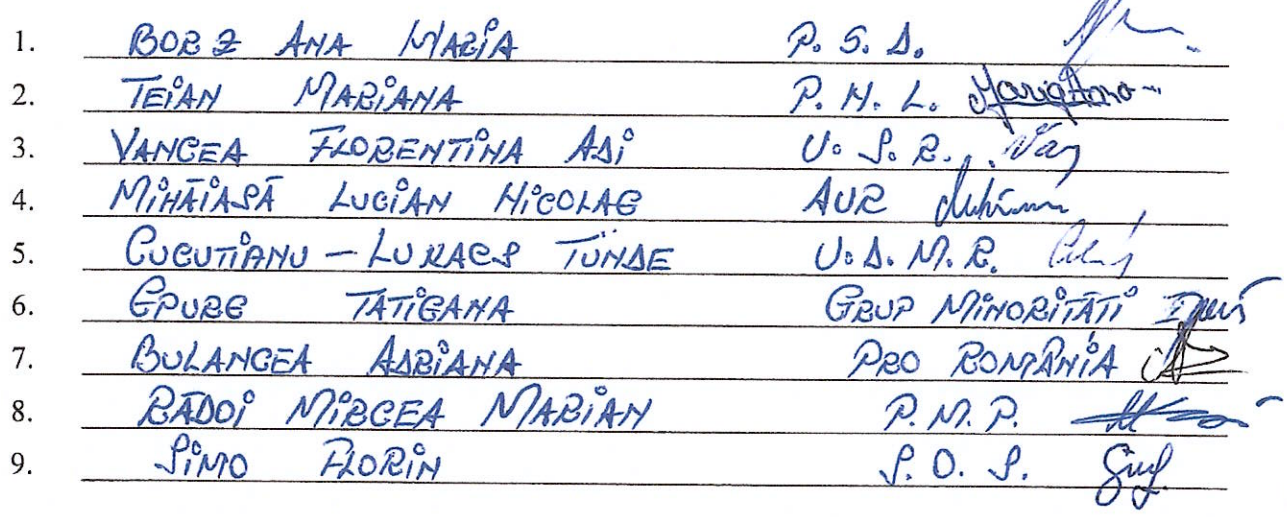 1. BORZ ANA MARIA P.S.D.
2. TEIAN MARIANA P.N.L.
3. VANCEA FLORENTINA ADI U.S.R.
4. MIHĂIASĂ LUCIAN NICOLAE AUR
5. CUCUTIANU - LUKACS TÜNDE U.D.M.R.
6. EPURE TATIEANA GRUP MINORITĂTI
7. BULANCEA ADRIANA PRO ROMÂNIA
8. RĂDOI MIRCEA MARIAN P.M.P.
9. SIMO FLORIN S.O.S.